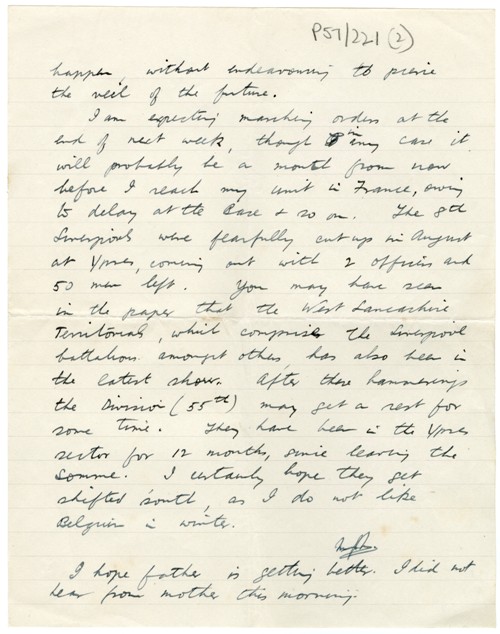 P57/221 (2)
happen, without endeavouring to pierce
the veil of the future.
I am expecting marching orders at the
end of next week, though in any case it
will probably be a month from now
before I reach my unit in France, owing
to delay at the Base & so on. The 8th
Liverpools were fearfully cut up in August
at Ypres, coming out with 2 officers and
50 men left. You may have seen
in the paper that the West Lancashire
Territorials, which comprise the Liverpool
battalions amongst others, has also been in
the latest show. After these hammerings
the Division (55th) may get a rest for
some time. They have been in the Ypres
sector for 12 months, since leaving the
Somme. I certainly hope they get
shifted south, as I do not like
Belgium in winter.
I hope father is getting better. I did not
hear from mother this morning.